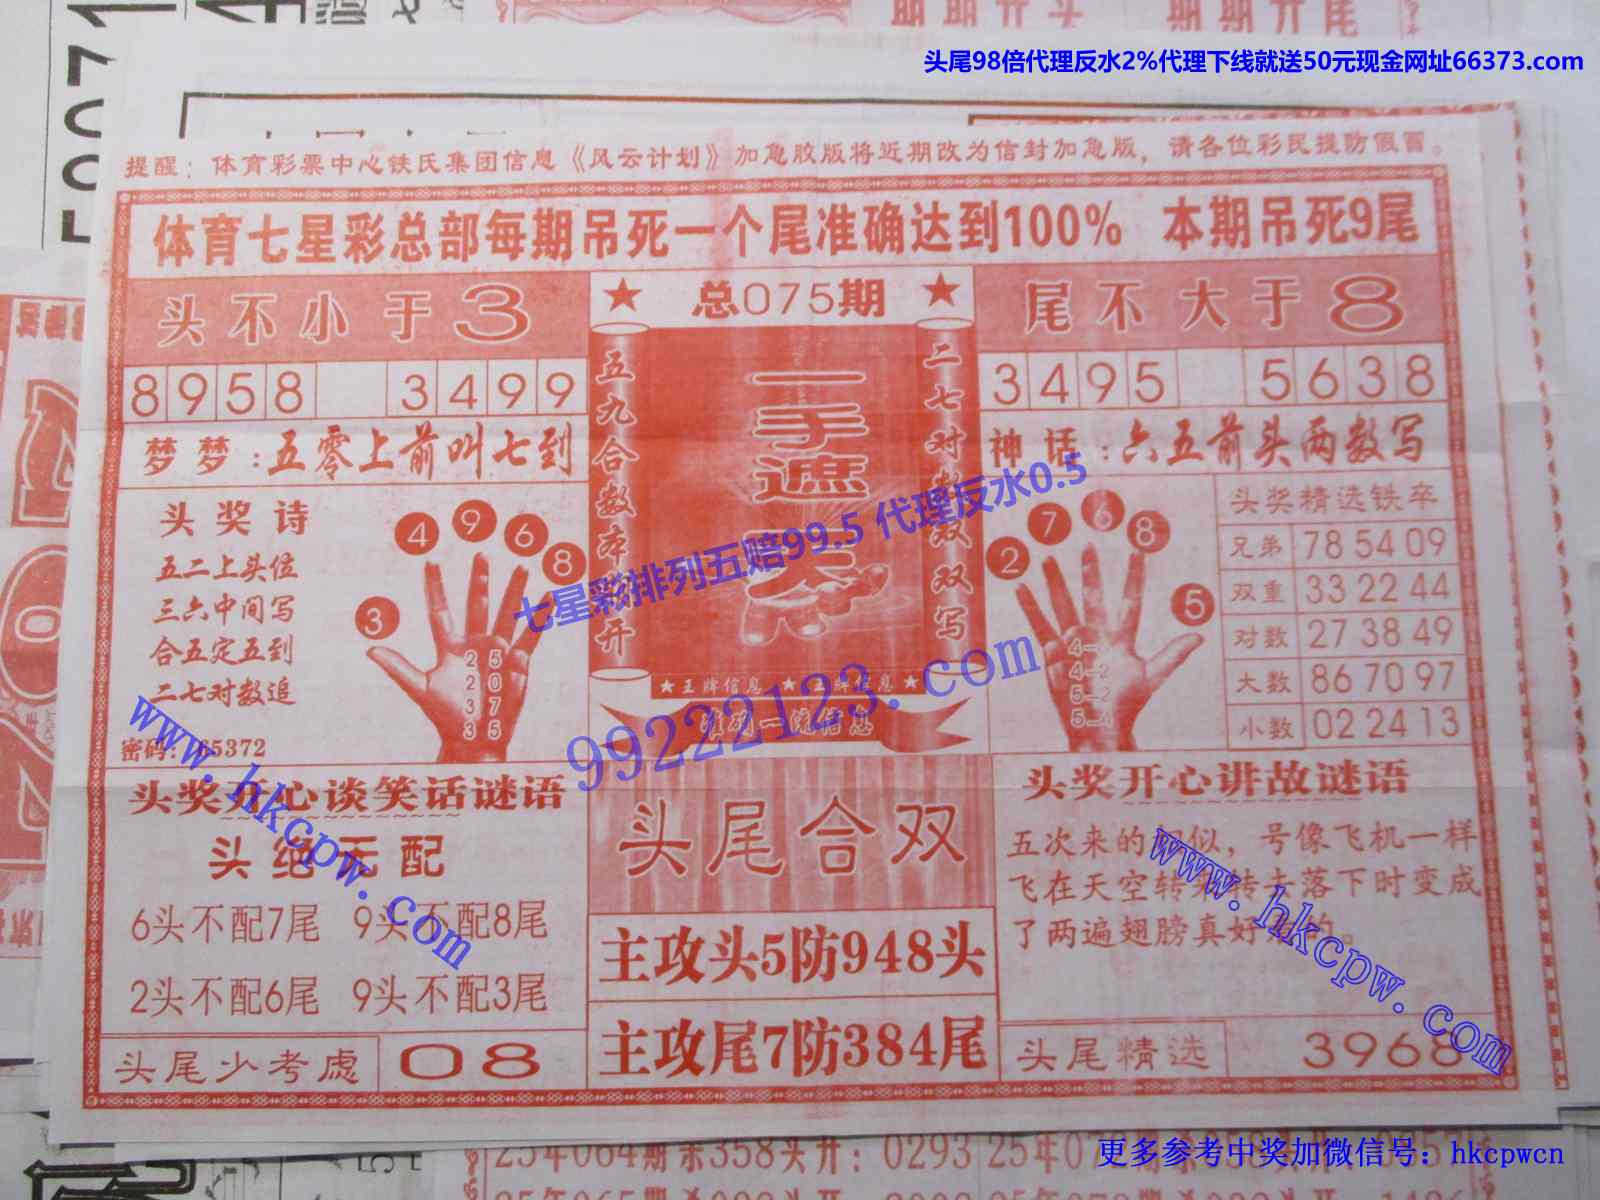 期期开头 期期开尾
头尾98倍代理反水2%代理下线就送50元现金网址66373.com
提醒：体育彩票中心铁氏集团信息《风云计划》加急胶版将近期改为信封加急版，请各位彩民提防假冒。
体育七星彩总部每期吊死一个尾准确达到100% 本期吊死9尾
头不小于3
8958 3499
梦梦:五零上前叫七到
头奖诗
五二上头位
三六中间写
合五定五到
二七对数追
3 4 9 6 8
2 5
2 0
3 7
3 5
★ 总075期 ★
五九合数本期开
一手遮天
二七对数双双写
★王牌信息 ★王牌信息★
准确一流信息
尾不大于8
3495 5638
神话:六五前头两数写
2 7 6 8 5
头奖精选铁卒
兄弟 78 54 09
双重 33 22 44
对数 27 38 49
大数 86 70 97
小数 02 24 13
头奖开心谈笑话谜语
头绝无配
6头不配7尾 9头不配8尾
2头不配6尾 9头不配3尾
头尾少考虑 08
头尾合双
主攻头5防948头
主攻尾7防384尾
头奖开心讲故谜语
五次来的相似，号像飞机一样
飞在天空转来转去落下时变成
头尾精选 3968
七星彩排列五赔99.5 代理反水0.5
99222123.com
www.hkcpw.com
www.hkcpw.com
更多参考中奖加微信号：hkcpwcn